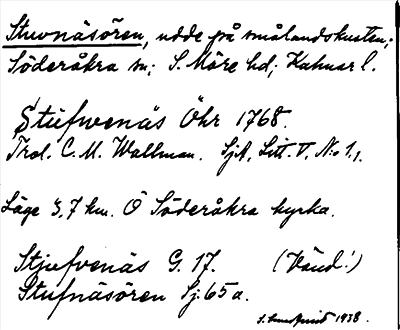 Stuvnäsören, udde på smålandskusten;
Söderåkra sn; S. Möre hd; Kalmar l.
Stufwenäs Öhr 1768.
Trol. C. M. Wallman. SjA, Litt. V, No 1.
Läge 3,7 km. Ö Söderåkra kyrka.
Stjufvenäs G. 17. (Vänd!)
Stufnäsören Sj. 65 a.
1938.